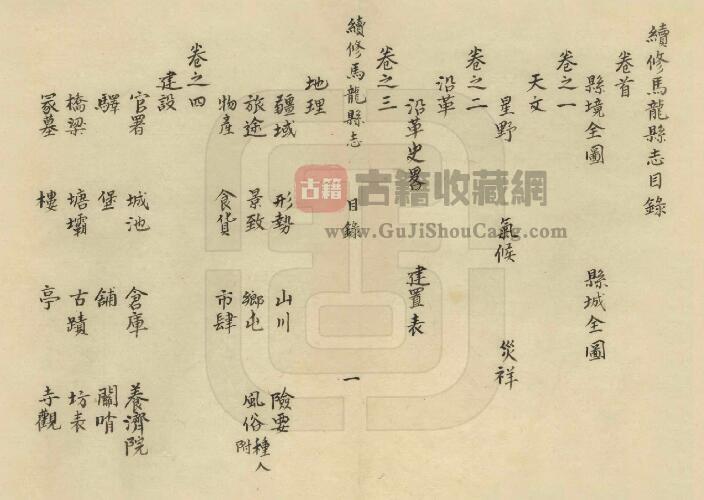 續修馬龍縣志目錄
卷首
縣境全圖 縣城全圖
卷之一
天文
星野 氣候 災祥
卷之二
沿革
沿革史畧 建置表
卷之三
續修馬龍縣志 目錄 一
地理
疆域 形勢 山川 險要
旅途 景致 鄉屯 風俗 種人附
物產 食貨 市肆
卷之四
建設
官署 城池 倉庫 養濟院
驛 堡 舖 關哨
橋梁 塘壩 古蹟 坊表
冢墓 樓 亭 寺觀
古籍 古籍收藏網
www.GuJiShouCang.com